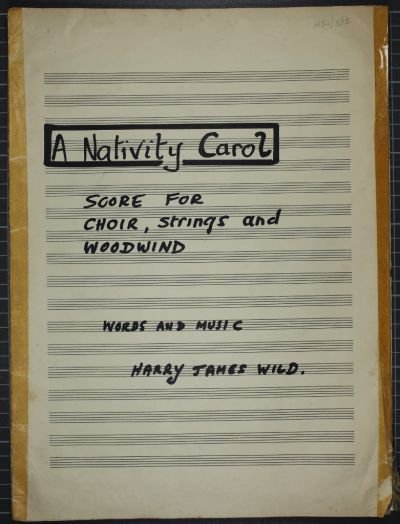 A Nativity Carol
SCORE FOR
CHOIR, strings and
WOODWIND
WORDS AND MUSIC
HARRY JAMES WILD.